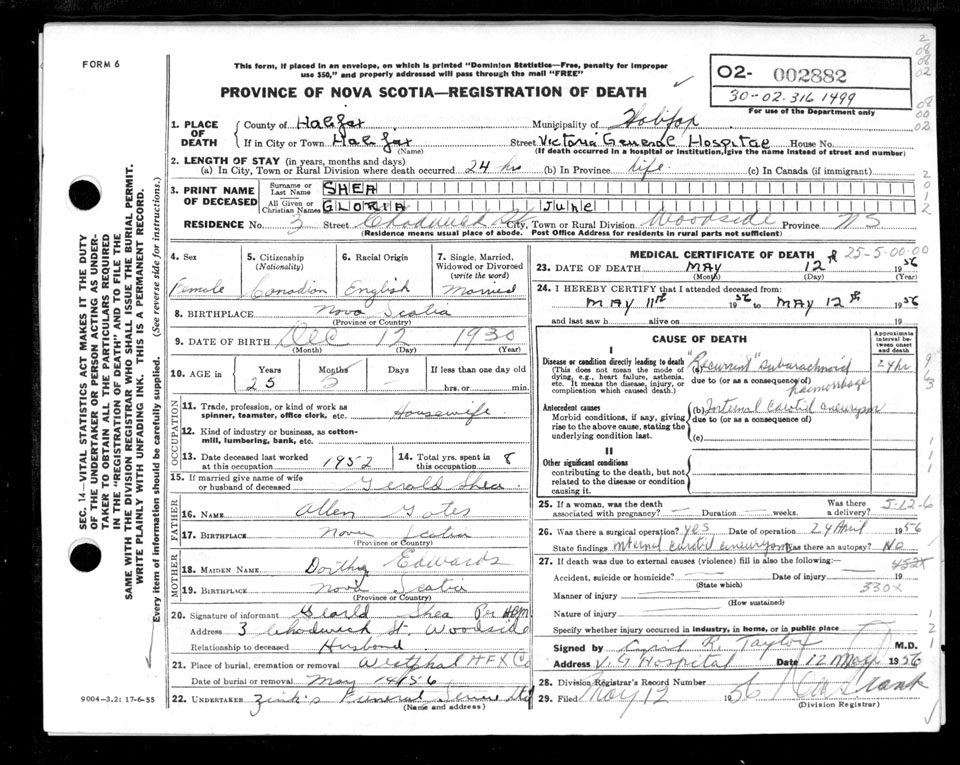 FORM 6
This form, if placed in an envelope, on which is printed "Dominion Statistics—Free, penalty for improper
use $50," and properly addressed will pass through the mail "FREE"
PROVINCE OF NOVA SCOTIA—REGISTRATION OF DEATH
O2- 002882
30-02-316 1499
For use of the Department only
1. PLACE OF DEATH
County of Halifax Municipality of Halifax
If in City or Town Halifax (Name) Street Victoria General Hospital House No.
(If death occurred in a hospital or institution, give the name instead of street and number)
2. LENGTH OF STAY (in years, months and days)
(a) In City, Town or Rural Division where death occurred 24 hrs (b) In Province Life (c) In Canada (if immigrant)
3. PRINT NAME OF DECEASED
Surname or Last Name SHEA
All Given or Christian Names GLORIA June
RESIDENCE No. 3 Street Chadwick St. City, Town or Rural Division Woodside Province NS
(Residence means usual place of abode. Post Office Address for residents in rural parts not sufficient)
4. Sex
Female
5. Citizenship (Nationality)
Canadian
6. Racial Origin
English
7. Single, Married, Widowed or Divorced (write the word)
Married
8. BIRTHPLACE Nova Scotia
(Province or Country)
9. DATE OF BIRTH Dec 12 1930
(Month) (Day) (Year)
10. AGE in Years 25 Months 5 Days - If less than one day old hrs. or min.
OCCUPATION
11. Trade, profession, or kind of work as spinner, teamster, office clerk, etc. Housewife
12. Kind of industry or business, as cotton-mill, lumbering, bank, etc.
13. Date deceased last worked at this occupation 1952 14. Total yrs. spent in this occupation 8
15. If married give name of wife or husband of deceased Gerald Shea
FATHER
16. NAME Allen Gates
17. BIRTHPLACE Nova Scotia
(Province or Country)
MOTHER
18. MAIDEN NAME Dorithy Edwards
19. BIRTHPLACE Nova Scotia
(Province or Country)
20. Signature of informant Gerald Shea Per
Address 3 Chadwick St. Woodside
Relationship to deceased Husband
21. Place of burial, cremation or removal Westphal HFX Co
Date of burial or removal May 14/56
22. UNDERTAKER Zink's Funeral Service
(Name and address)
MEDICAL CERTIFICATE OF DEATH 25-5-00-00
23. DATE OF DEATH MAY 12 1956
(Month) (Day) (Year)
24. I HEREBY CERTIFY that I attended deceased from:
MAY 11th 1956 to MAY 12th 1956
and last saw h alive on 19
CAUSE OF DEATH
Approximate interval between onset and death
I
Disease or condition directly leading to death
(This does not mean the mode of dying, e.g., heart failure, asthenia, etc. It means the disease, injury, or complication which caused death.)
(a) "Recurrent" subarachnoid haemorrhage 24 hr
due to (or as a consequence of)
Antecedent causes
Morbid conditions, if any, giving rise to the above cause, stating the underlying condition last.
(b) Internal Carotid aneurysm
due to (or as a consequence of)
(c)
II
Other significant conditions
contributing to the death, but not related to the disease or condition causing it.
25. If a woman, was the death associated with pregnancy? — Duration — weeks. Was there a delivery? 5-12-6
26. Was there a surgical operation? yes Date of operation 24 April 1956
State findings internal carotid aneurysm Was there an autopsy? No
27. If death was due to external causes (violence) fill in also the following:—
Accident, suicide or homicide? Date of injury 19
(State which)
330X
Manner of injury
(How sustained)
Nature of injury
Specify whether injury occurred in industry, in home, or in public place
Signed by R. Taylor M.D.
Address V. G Hospital Date 12 May 1956
28. Division Registrar's Record Number
29. Filed May 12 1956
(Division Registrar)
SEC. 14—VITAL STATISTICS ACT MAKES IT THE DUTY
OF THE UNDERTAKER OR PERSON ACTING AS UNDER-
TAKER TO OBTAIN ALL THE PARTICULARS REQUIRED
IN THE "REGISTRATION OF DEATH" AND TO FILE THE
SAME WITH THE DIVISION REGISTRAR WHO SHALL ISSUE THE BURIAL PERMIT.
WRITE PLAINLY WITH UNFADING INK. THIS IS A PERMANENT RECORD.
Every item of information should be carefully supplied. (See reverse side for instructions.)
9004—3.2: 17-6-55